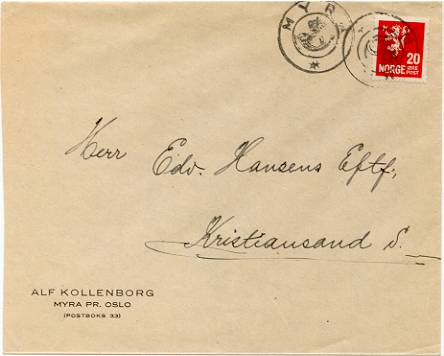 MYRA
20
NORGE ØRE POST
Herr Edv. Hansens Eftf,
Kristiansand S.
ALF KOLLENBORG
MYRA PR. OSLO
(POSTBOKS 33)